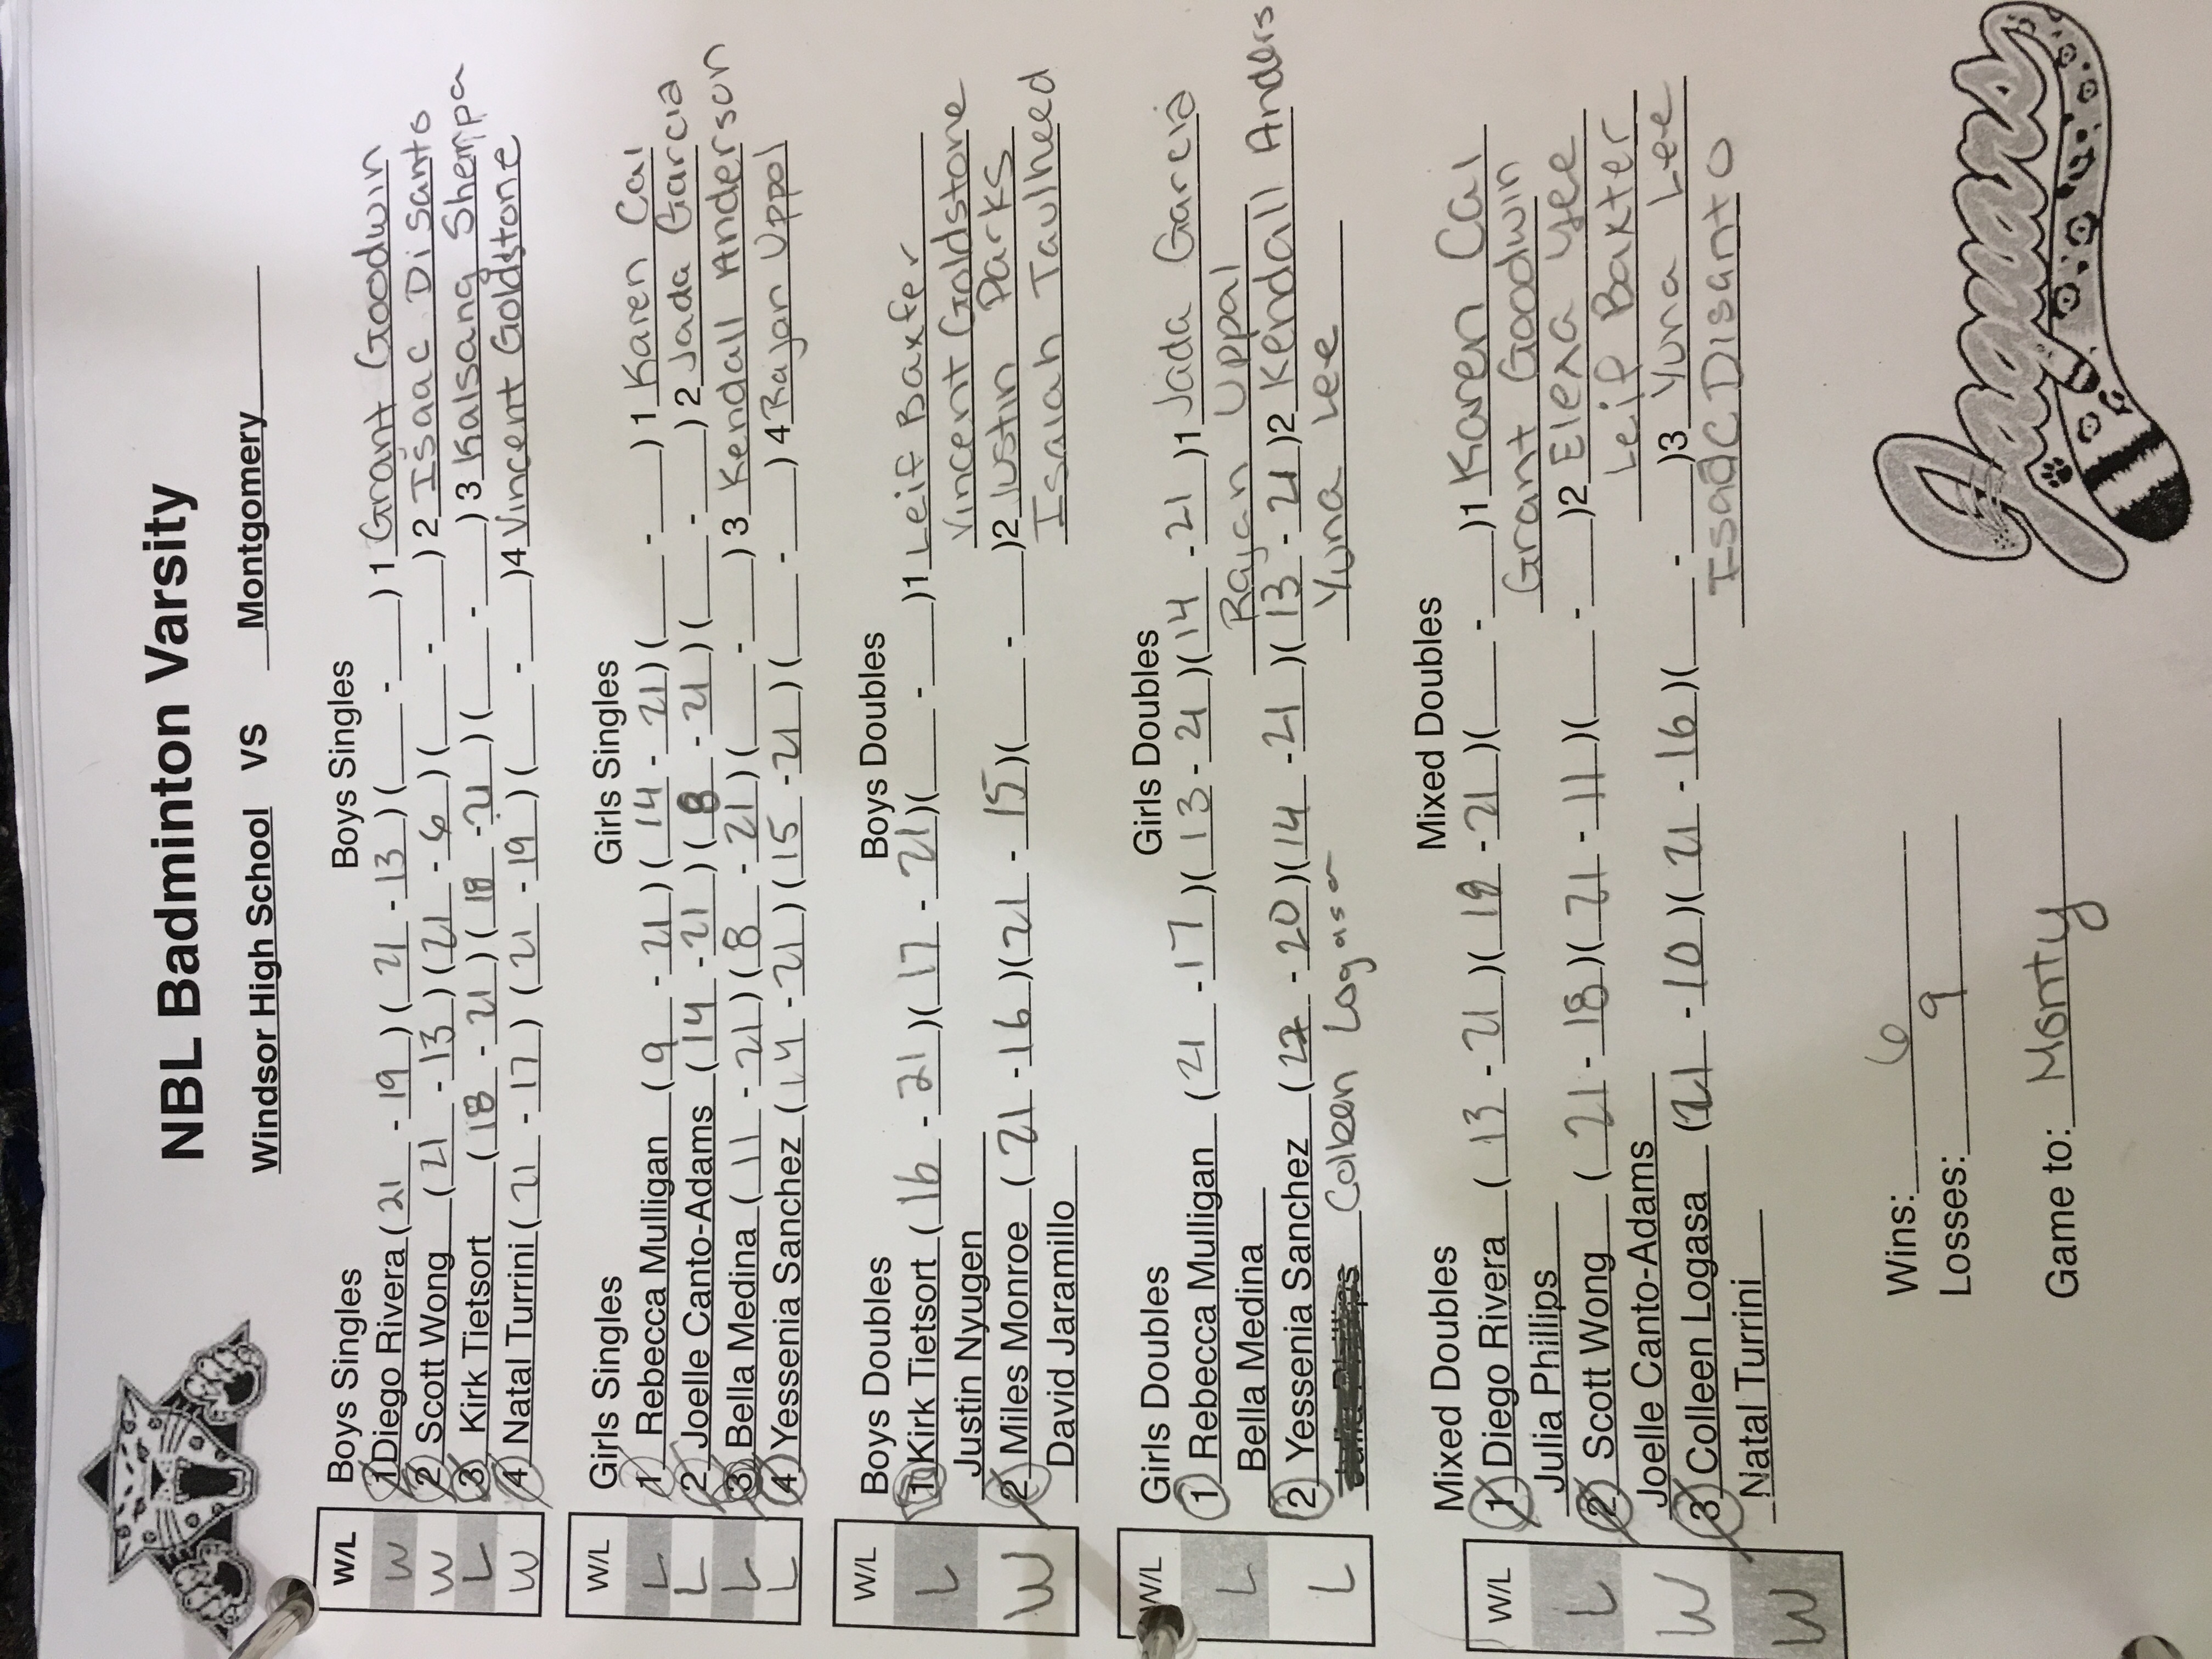 NBL Badminton Varsity
Windsor High School VS Montgomery
Boys Singles Boys Singles
W/L
W 1 Diego Rivera (21 - 19) (21 - 13) (___ - ___) 1 Grant Goodwin
W 2 Scott Wong (21 - 13) (21 - 6) (___ - ___) 2 Isaac Disanto
L 3 Kirk Tietsort (18 - 21) (18 - 21) (___ - ___) 3 Kalsang Shempa
W 4 Natal Turrini (21 - 17) (21 - 19) (___ - ___) 4 Vincent Goldstone
Girls Singles Girls Singles
W/L
L 1 Rebecca Mulligan (9 - 21) (14 - 21) (___ - ___) 1 Karen Cal
L 2 Joelle Canto-Adams (14 - 21) (8 - 21) (___ - ___) 2 Jada Garcia
L 3 Bella Medina (11 - 21) (8 - 21) (___ - ___) 3 Kendall Anderson
L 4 Yessenia Sanchez (14 - 21) (15 - 21) (___ - ___) 4 Rajan Uppal
Boys Doubles Boys Doubles
W/L
L 1 Kirk Tietsort (16 - 21) (17 - 21) (___ - ___) 1 Leif Baxter
Justin Nyugen Vincent Goldstone
W 2 Miles Monroe (21 - 16) (21 - 15) (___ - ___) 2 Justin Parks
David Jaramillo Isaiah Taulheed
Girls Doubles Girls Doubles
W/L
L 1 Rebecca Mulligan (21 - 17) (13 - 21) (14 - 21) 1 Jada Garcia
Bella Medina Rajan Uppal
L 2 Yessenia Sanchez (22 - 20) (14 - 21) (13 - 21) 2 Kendall Anders
Julia Phillips Colleen Logasa Yuna Lee
Mixed Doubles Mixed Doubles
W/L
L 1 Diego Rivera (13 - 21) (19 - 21) (___ - ___) 1 Karen Cal
Julia Phillips Grant Goodwin
W 2 Scott Wong (21 - 18) (21 - 11) (___ - ___) 2 Elexa Yee
Joelle Canto-Adams Leif Baxter
W 3 Colleen Logasa (21 - 10) (21 - 16) (___ - ___) 3 Yuna Lee
Natal Turrini Isaac Disanto
Wins: 6
Losses: 9
Game to: Monty
Jaguars